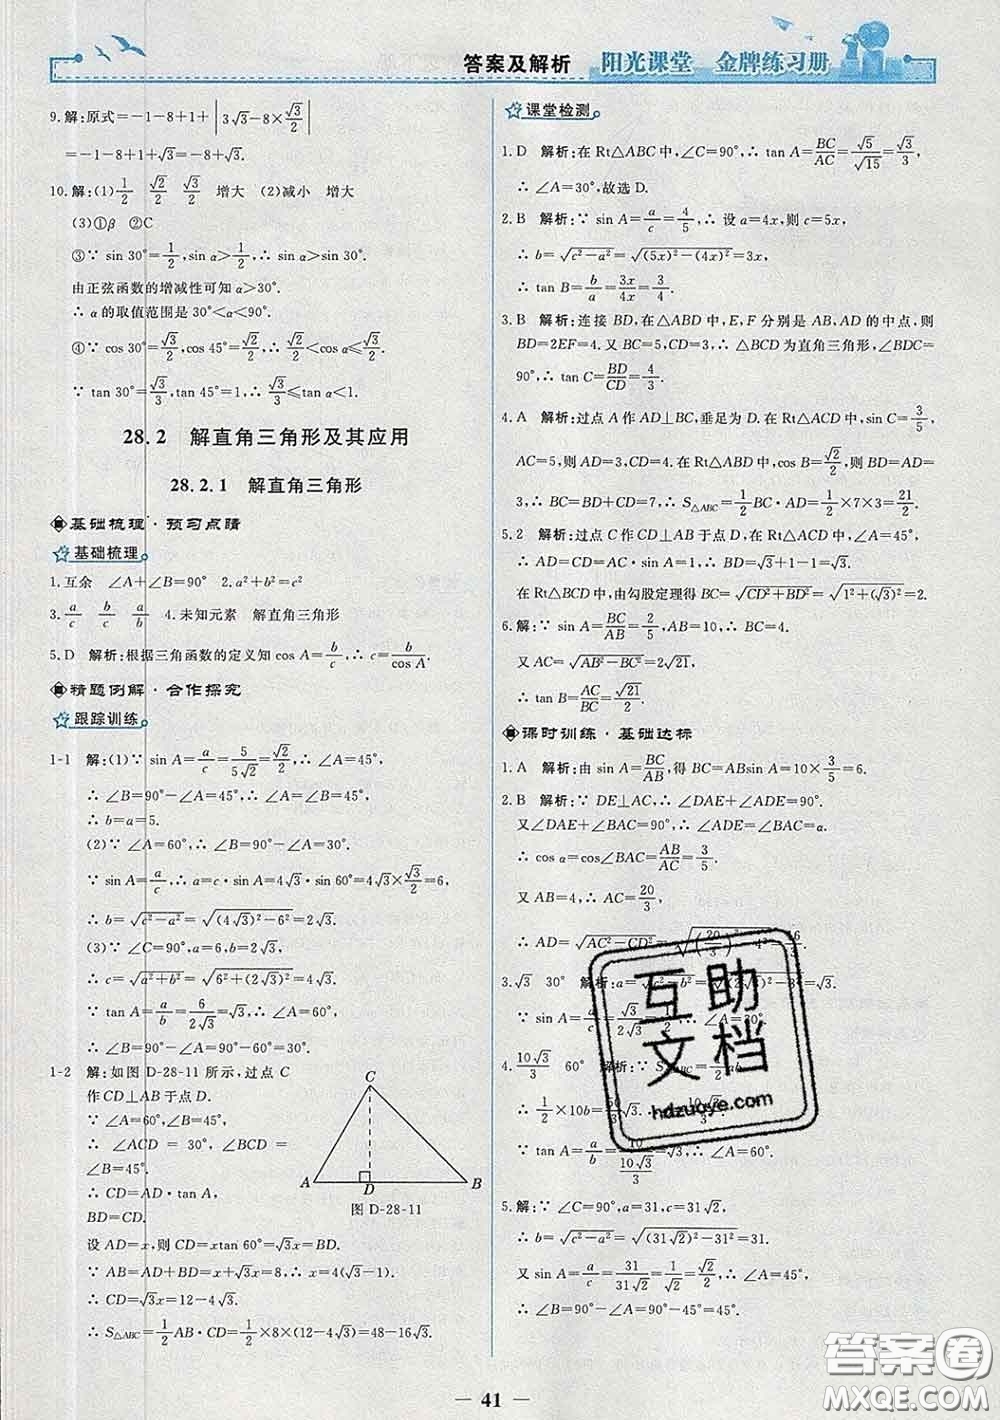 答案及解析 阳光课堂 金牌练习册
9.解:原式=-1-8+1+|3√3-8×√3/2|
=-1-8+1+√3=-8+√3.
10.解:(1)1/2 √2/2 √3/2 增大 (2)减小 增大
(3)①β ②C
③∵ sin 30°=1/2,sin α>1/2,∴ sin α>sin 30°.
由正弦函数的增减性可知α>30°.
∴ α的取值范围是30°<α<90°.
④∵ cos 30°=√3/2,cos 45°=√2/2,∴ √2/2<cos α≤√3/2.
∵ tan 30°=√3/3,tan 45°=1,∴ √3/3≤tan α<1.
28.2 解直角三角形及其应用
28.2.1 解直角三角形
基础梳理·预习点睛
基础梳理
1.互余 ∠A+∠B=90° 2.a²+b²=c²
3.a/c b/c a/b 4.未知元素 解直角三角形
5.D 解析:根据三角函数的定义知cos A=b/c,∴ c=b/cos A.
精题例解·合作探究
跟踪训练
1-1 解:(1)∵ sin A=a/c=5/5√2=√2/2,∴ ∠A=45°,
∴ ∠B=90°-∠A=45°,∴ ∠A=∠B=45°,
∴ b=a=5.
(2)∵ ∠A=60°,∴ ∠B=90°-∠A=30°.
∵ sin A=a/c,∴ a=c·sin A=4√3·sin 60°=4√3×√3/2=6,
∴ b=√(c²-a²)=√((4√3)²-6²)=2√3.
(3)∵ ∠C=90°,a=6,b=2√3,
∴ c=√(a²+b²)=√(6²+(2√3)²)=4√3.
∵ tan A=a/b=6/2√3=√3,∴ ∠A=60°,
∴ ∠B=90°-∠A=90°-60°=30°.
1-2 解:如图D-28-11所示,过点C
作CD⊥AB于点D.
∵ ∠A=60°,∠B=45°,
∴ ∠ACD = 30°,∠BCD =
∠B=45°.
∴ CD=AD·tan A,
BD=CD.
C
A
D
B
图 D-28-11
设AD=x,则CD=xtan 60°=√3x=BD.
∵ AB=AD+BD=x+√3x=8,∴ x=4√3-4.
∴ CD=√3x=12-4√3.
∴ S△ABC=1/2AB·CD=1/2×8×(12-4√3)=48-16√3.
课堂检测
1.D 解析:在Rt△ABC中,∠C=90°,∴ tan A=BC/AC=√5/√15=√3/3,
∴ ∠A=30°,故选D.
2.B 解析:∵ sin A=a/c=4/5,∴ 设a=4x,则c=5x,
∴ b=√(c²-a²)=√((5x)²-(4x)²)=3x,
∴ tan B=b/a=3x/4x=3/4.
3.B 解析:连接BD,在△ABD中,E,F分别是AB,AD的中点,则
BD=2EF=4.又BC=5,CD=3,∴ △BCD为直角三角形,∠BDC=
90°,∴ tan C=BD/CD=4/3.
4.A 解析:过点A作AD⊥BC,垂足为D.在Rt△ACD中,sin C=3/5,
AC=5,则AD=3,∴ CD=4.在Rt△ABD中,cos B=√2/2,则BD=AD=
3,∴ BC=BD+CD=7,∴ S△ABC=1/2BC·AD=1/2×7×3=21/2.
5.2 解析:过点C作CD⊥AB于点D,在Rt△ACD中,∠A=45°,
∴ AD=CD=AC/√2=1,∴ BD=AB-AD=√3+1-1=√3.
在Rt△BCD中,由勾股定理得BC=√(CD²+BD²)=√(1²+(√3)²)=2.
6.解:∵ sin A=BC/AB=2/5,AB=10,∴ BC=4.
又AC=√(AB²-BC²)=2√21,
∴ tan B=AC/BC=√21/2.
课时训练·基础达标
1.A 解析:由sin A=BC/AB,得BC=ABsin A=10×3/5=6.
2.B 解析:∵ DE⊥AC,∴ ∠DAE+∠ADE=90°.
又∠DAE+∠BAC=90°,∴ ∠ADE=∠BAC=α.
∴ cos α=cos∠BAC=AB/AC=3/5.
又AB=4,∴ AC=20/3.
∴ AD=√(AC²-CD²)=√((20/3)²-4²)=16/3.
3.√3 30° 解析:a=
∵ sin A=
4.10√3/3 60° 解析:∵ S
∴ 1/2×10b=
∵ tan A=a/b=10/(10√3/3)=√3,∴ ∠A=60°.
5.解:∵ ∠C=90°,a=31,c=31√2,
∴ b=√(c²-a²)=√((31√2)²-31²)=31.
又sin A=a/c=31/31√2=1/√2=√2/2,∴ ∠A=45°,
∴ ∠B=90°-∠A=90°-45°=45°.
互助文档
hdzuoye.com
答案圈
MXQE.COM
— 41 —